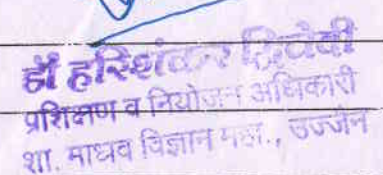 डॉ हरिशंकर द्विवेदी
प्रशिक्षण व नियोजन अधिकारी
शा. माधव विज्ञान महा., उज्जैन